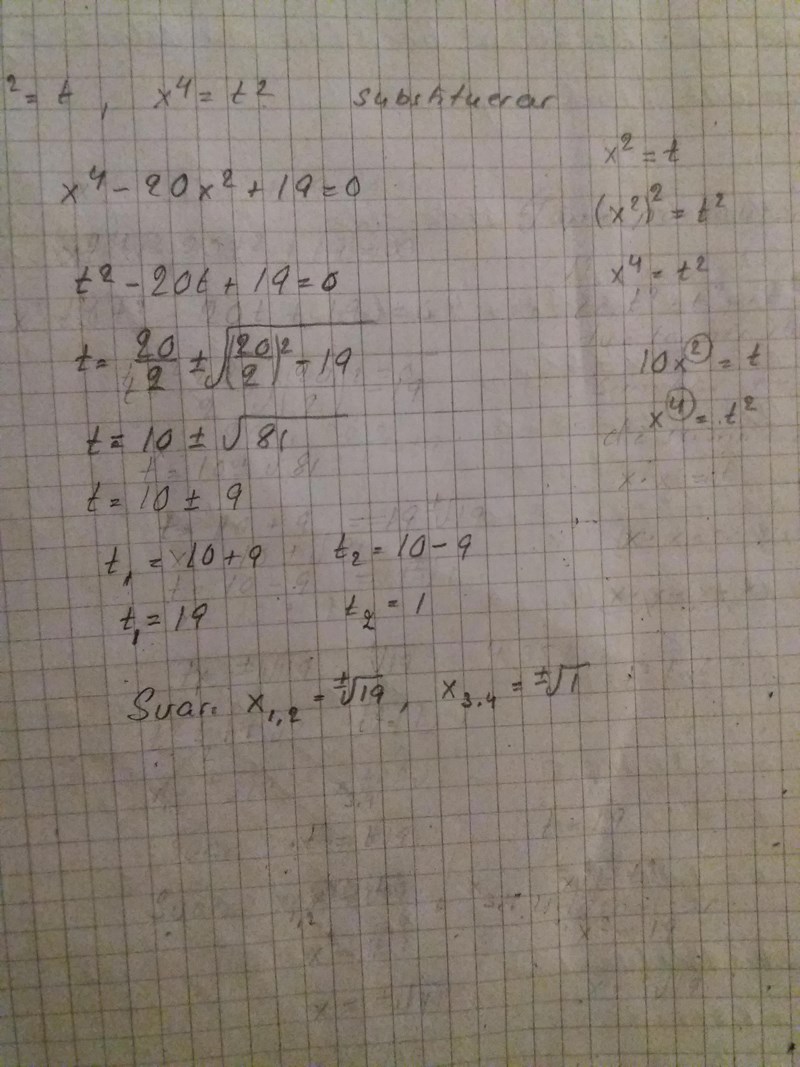 ²= t, x⁴= t² substituerar
x⁴ - 20x² + 19 = 0
t² - 20t + 19 = 0
t = 20/2 ± √(20/2)² - 19
t = 10 ± √81
t = 10 ± 9
t₁ = 10 + 9 t₂ = 10 - 9
t₁ = 19 t₂ = 1
Svar: x₁,₂ = ±√19, x₃.₄ = ±√1
x² = t
(x²)² = t²
x⁴ = t²
10x² = t
x⁴ = t²